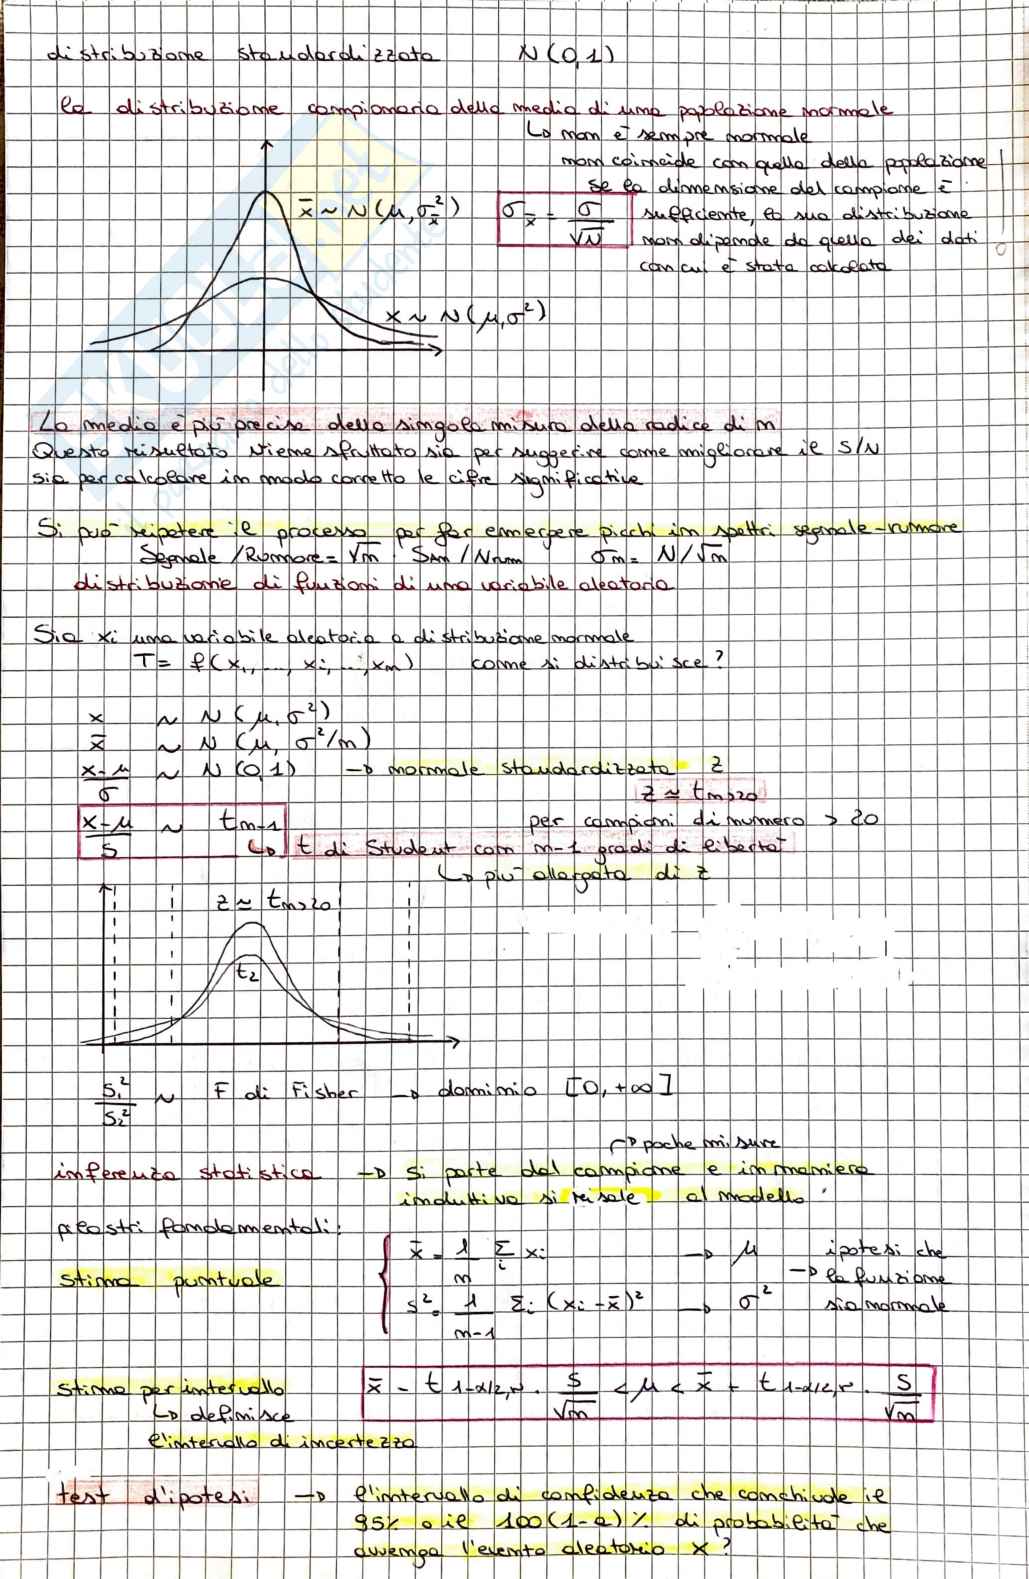 distribuzione standardizzata N(0,1)
la distribuzione campionaria della media di una popolazione normale
↳ non è sempre normale
non coincide con quella della popolazione
se la dimensione del campione è
x̄ ~ N(μ, σx̄²) σx̄ = σ/√N sufficiente, la sua distribuzione
non dipende da quella dei dati
con cui è stata calcolata
x ~ N(μ,σ²)
La media è più precisa della singola misura della radice di n
Questo risultato viene sfruttato sia per suggerire come migliorare il S/N
sia per calcolare in modo corretto le cifre significative
Si può ripetere il processo per far emergere picchi in spettri segnale-rumore
Segnale/Rumore = √n · San/Nnum σn = N/√n
distribuzione di funzioni di una variabile aleatoria
Sia xi una variabile aleatoria a distribuzione normale
T = f(x1, ..., xi, ..., xn) come si distribuisce?
x ~ N(μ, σ²)
x̄ ~ N(μ, σ²/n)
x-μ/σ ~ N(0,1) → normale standardizzata z
z ≃ tn>20
x-μ/s ~ tn-1 per campioni di numero > 20
↳ t di Student con n-1 gradi di libertà
↳ più allargata di z
z ≃ tn>20
t2
s1²/s2² ~ F di Fisher → dominio [0, +∞]
→ poche misure
inferenza statistica → si parte dal campione e in maniera
induttiva si risale al modello
pilastri fondamentali:
x̄ = 1/n Σi xi → μ ipotesi che
stima puntuale → la funzione
s² = 1/n-1 Σi (xi - x̄)² → σ² sia normale
stima per intervallo x̄ - t1-α/2,ν · s/√n < μ < x̄ + t1-α/2,ν · s/√n
↳ definisce
l'intervallo di incertezza
test d'ipotesi → l'intervallo di confidenza che conchiude il
95% o il 100(1-α)% di probabilità che
avvenga l'evento aleatorio x?